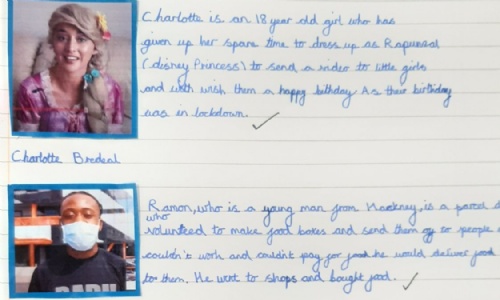 Charlotte is an 18 year old girl who has
given up her spare time to dress up as Rapunzal
(disney Princess) to send a video to little girls
and with wish them a happy bithday As their birthday
was in lockdown.
Charlotte Bredeal
Ramon, who is a young man from Hackney, is a parcel
who
volunteed to make food boxes and send them to people
couldn't work and couldnt pay for food he would deliver food
to them. He went to shops and bought food.